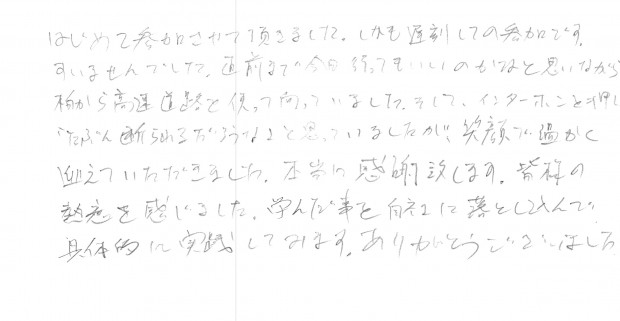 はじめて参加させて頂きました。しかも遅刻しての参加です。
すいませんでした。直前まで今日行ってもいいのかなと思いながら
柏から高速道路を使って向っていました。そして、インターホンを押し
「たぶん断られるだろうな」と思っていましたが、笑顔で温かく
迎えていただきました。本当に感謝致します。皆様の
熱意を感じました。学んだ事を自社に落とし込んで
具体的に実践してみます。ありがとうございました